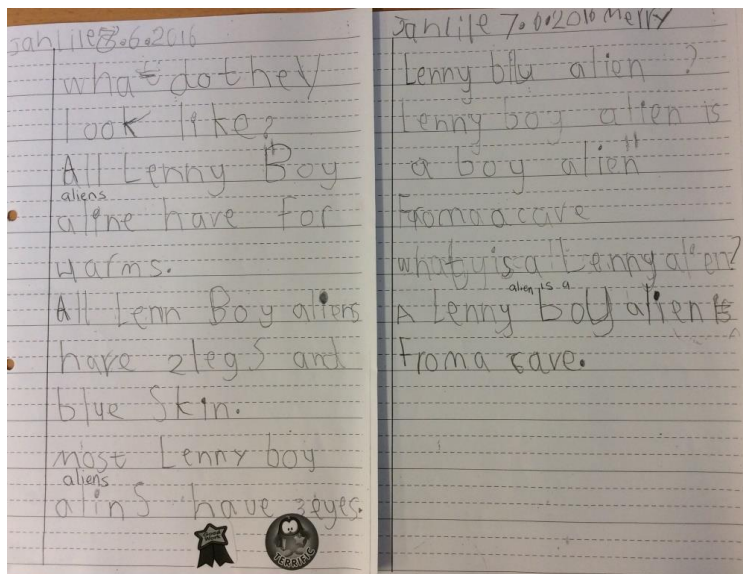 8.6.2016
what do they
look like?
All Lenny Boy
aliens
aline have for
4 arms.
All Lenn Boy aliens
have 2legs and
blue skin.
most Lenny boy
aliens
alins have 3eyes.
TERRIFIC
7.6.2016 Merry
Lenny boy alien ?
Lenny boy alien is
a boy alien
From a cave
what is a Lenny alien?
alien is a
A Lenny boy alien is
From a cave.